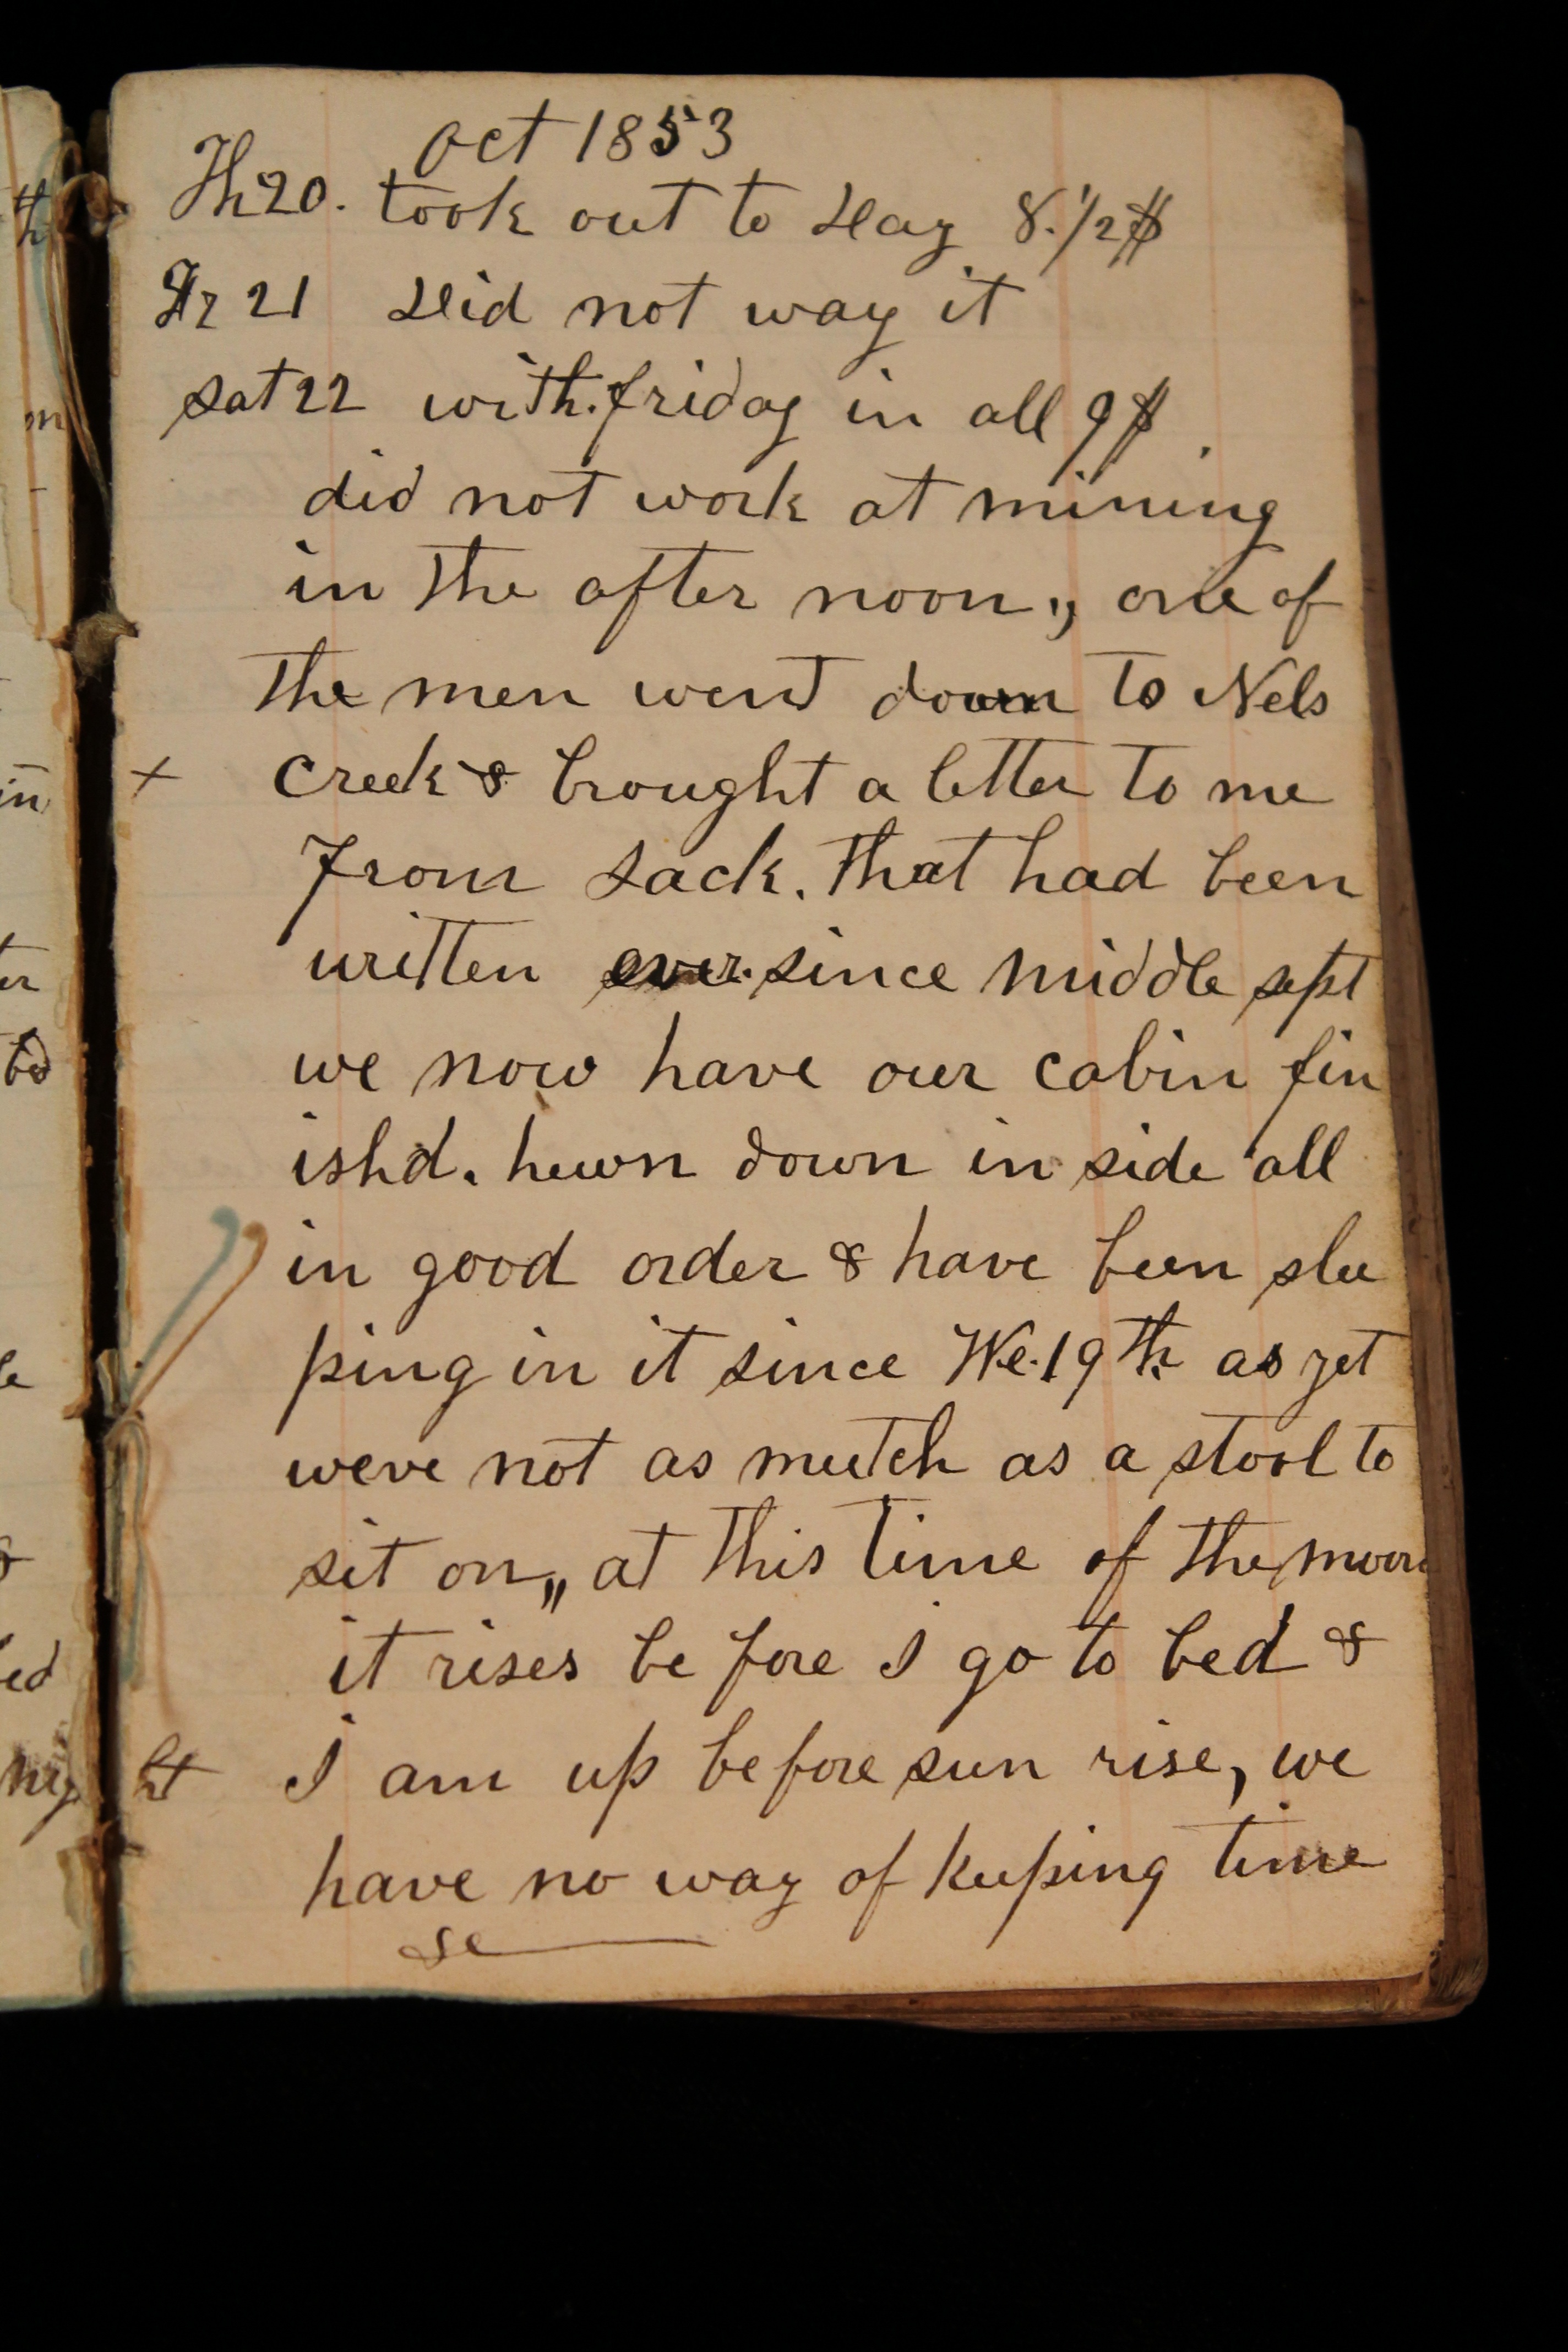 Oct 1853
Th 20. took out to day 8.1/2$
Fr 21 did not way it
sat 22 with. friday in all 9$.
did not work at mining
in the after noon., one of
the men went down to Nels
+ creek & brought a letter to me
From sack. that had been
written ever. since middle sept
we now have our cabin fin
ishd. hewn down in side all
in good order & have been slee
ping in it since We. 19th as yet
weve not as mutch as a stool to
sit on,, at this time of the moon
it rises be fore I go to bed &
ht I am up before sun rise, we
have no way of keeping time